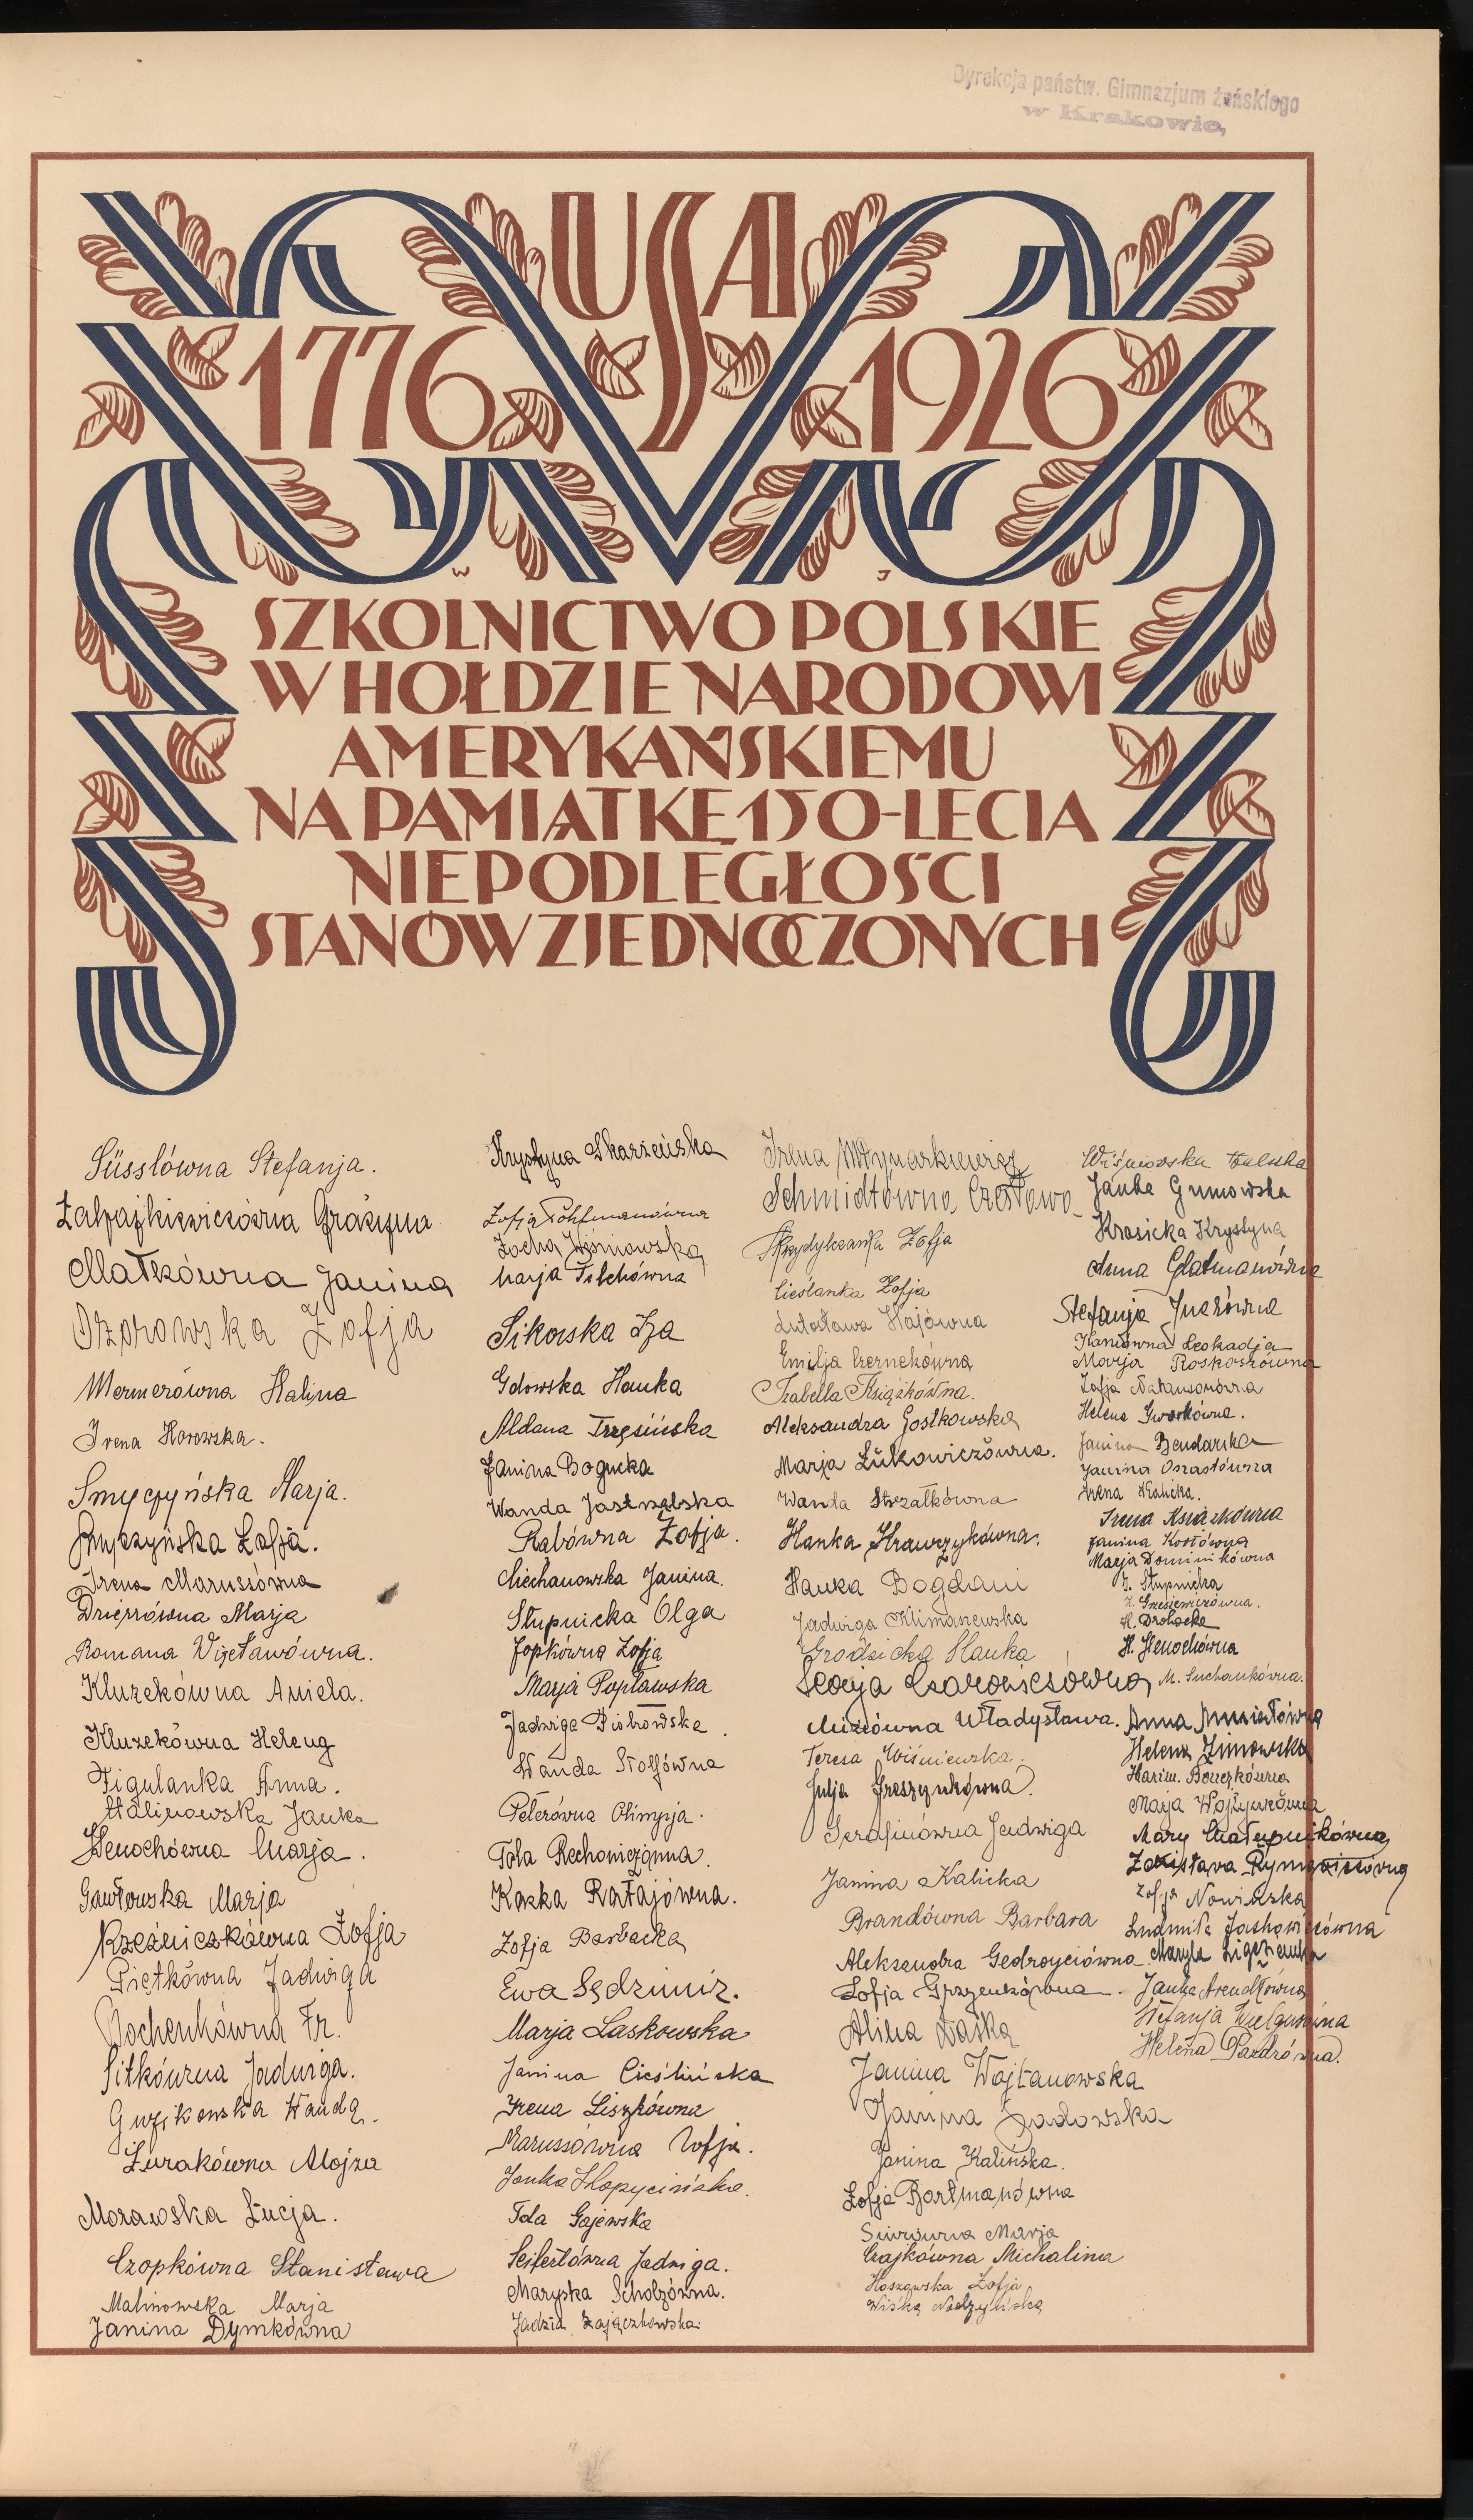 Dyrekcja państw. Gimnazjum żeńskiego
w Krakowie,
USA
1776 1926
W J
SZKOLNICTWO POLSKIE
W HOŁDZIE NARODOWI
AMERYKAŃSKIEMU
NA PAMIĄTKĘ 150-LECIA
NIEPODLEGŁOŚCI
STANÓW ZJEDNOCZONYCH
Süsslówna Stefanja.
Grażyna
Małkówna Janina
Ozorowska Zofja
Mermerówna Halina
Irena Horowska.
Smyczyńska Marja.
Smyczyńska Zofja.
Irena Marussówna
Marja
Romana Więcławówna.
Kluzekówna Aniela.
Kluzekówna Helena
Figulanka Anna.
Malinowska Janka
Henochówna Marja.
Gawłowska Marja
Rzeźniczkówna Zofja
Piętkówna Jadwiga
Bochenkówna Fr.
Sitkówna Jadwiga.
Guzikowska Wanda.
Żurakówna Alojza
Morawska Łucja.
Czopkówna Stanisława
Malinowska Marja
Janina Dymkówna
Krystyna Skarżeńska
Zofja
Zocha Wiśniowska
Marja
Sikorska Iza
Gdowska Hanka
Aldana
Janina Bogucka
Wanda Jastrzębska
Rabówna Zofja.
Ciechanowska Janina.
Słupnicka Olga
Jopkówna Zofja
Marja Popławska
Jadwiga Piotrowska.
Wanda
Peterówna Olimpja.
Tola
Kaska Ratajówna.
Zofja Barbacka
Ewa Sędzimir.
Marja Laskowska
Janina Cieślińska
Irena Liszkówna
Marussówna Zofja.
Janka
Tola Gajewska
Seifertówna Jadwiga.
Maryska Scholzówna.
Jadzia Zajączkowska.
Irena Młynarkiewicz
Schmidtówna Czesława
Zofja
Cieślanka Zofja
Lutosława Hajówna
Emilja Czernekówna
Izabella Książkówna.
Aleksandra Gostkowska
Marja Łukowiczówna.
Wanda Strzałkówna
Hanka Krawczykówna.
Hanka Bogdani
Jadwiga Klimaszewska
Grodzicka Hanka
Władysława.
Teresa Wiśniewska.
Julja
Serafinówna Jadwiga
Janina Kalicka
Brandówna Barbara
Aleksandra Gedroyciówna
Zofja
Alina
Janina Wojtanowska
Janina Sadowska
Janina Kalińska.
Zofja Bartmanówna
Marja
Czajkówna Michalina
Hoszowska Zofja
Wiśka
Wiśniowska Haluka
Janka Gumowska
Krasicka Krystyna
Anna Glatmanówna
Stefanja
Haniówna Leokadja
Marja Roskoszówna
Zofja Natansonówna
Helena Gworkówna.
Janina Bendarska
Janina
Irena Kalicka.
Irena Książkówna
Janina Kostówna
Marja Dominikówna
J. Słupnicka
Z. Grzesiewiczówna.
H. Drohocka
H. Henochówna
M. Suchankówna.
Anna
Helena Zimowska
Marja
Mary Chałupnikówna
Zofja Nowińska
Ludmiła Jachowiczówna
Maryla Ligęzanka
Janka Arendtówna
Stefanja
Helena Pazdrówna.